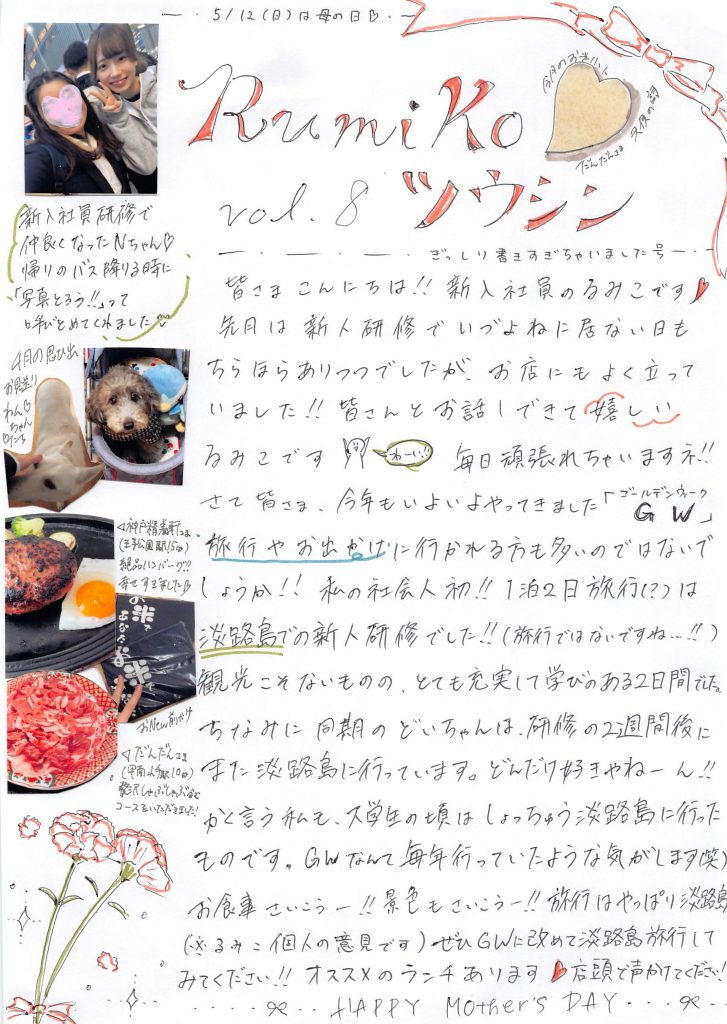 5/12(日)は母の日
Rumiko
ツウシン
vol. 8
今月のお米ハート
だんだんさま
ぎっしり書きすぎちゃいました号
新入社員研修で
仲良くなったNちゃん♡
帰りのバス降りる時に
「写真とろう!!」って
呼びとめてくれました♡
4月の思ひ出
お見送り
わん♡
ちゃん
◁神戸精養軒さま
(王子公園駅15分)
絶品ハンバーグ!!
幸せすぎました
お米で
あなたを
お New 前かけ
◁だんだんさま
(甲南山手駅10分)
贅沢しゃぶしゃぶ
コースをいただきました!
皆さまこんにちは!! 新入社員のるみこです♥
先月は新人研修でいづよねに居ない日も
ちらほらありつつでしたが、お店にもよく立って
いました!! 皆さんとお話しできて嬉しい
るみこです わーい!! 毎日頑張れちゃいますネ!!
さて皆さま、今年もいよいよやってきました「GW」
ゴールデンウィーク
旅行やお出かけに行かれる方も多いのではないで
しょうか!! 私の社会人初!! 1泊2日旅行(?)は
淡路島での新人研修でした!! (旅行ではないですね…!!)
観光こそないものの、とても充実して学びのある2日間でした。
ちなみに同期のどいちゃんは、研修の2週間後に
また淡路島に行っています。どんだけ好きやねーん!!
かく言う私も、大学生の頃はしょっちゅう淡路島に行った
ものです。GWなんて毎年行っていたような気がします(笑)
お食事さいこうー!! 景色もさいこうー!! 旅行はやっぱり淡路島
(※るみこ個人の意見です) ぜひGWに改めて淡路島旅行して
みてください!! オススメのランチあります♥店頭で声かけてください!
HAPPY Mother's DAY